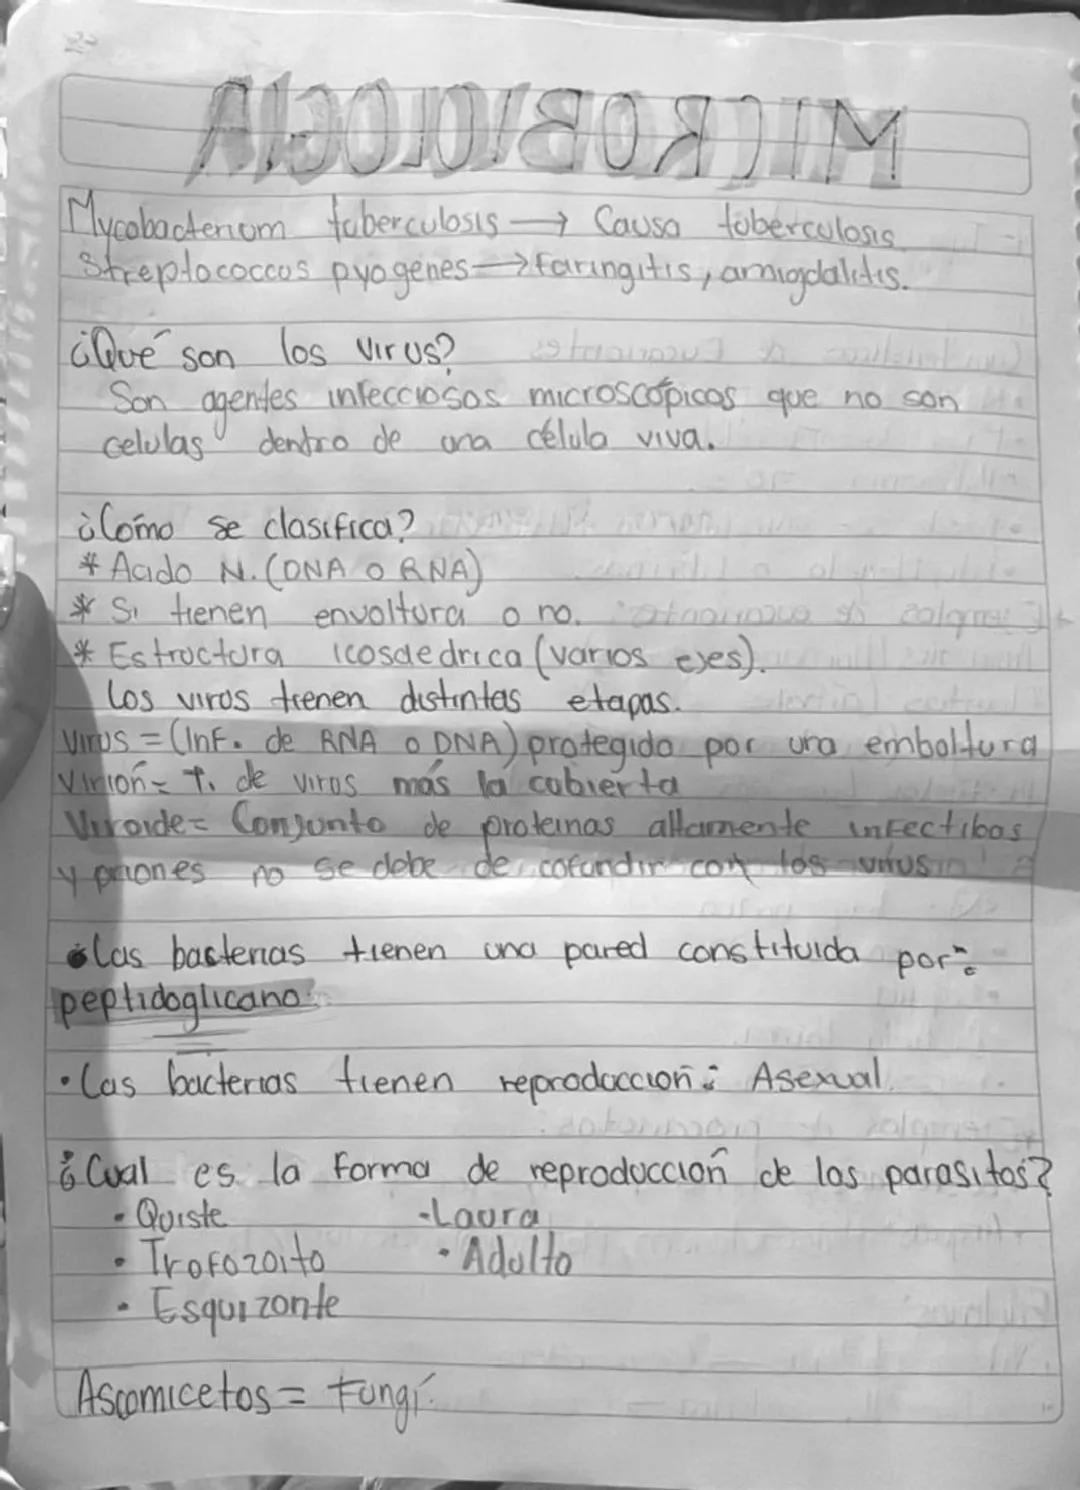 MICROBIOLOGIA
Mycobacterium tuberculosis → Causa tuberculosis
Streptococcus pyogenes → Faringitis, amigdalitis.
¿Qué son los virus?
Son agentes infecciosos microscópicos que no son
celulas dentro de una célula viva.
¿Cómo se clasifica?
* Acido N. (DNA O RNA)
* Si tienen envoltura o no.
* Estructura icosaedrica (varios ejes).
Los virus tienen distintas etapas.
Virus = (Inf. de RNA o DNA) protegido por una emboltura
Virión = T. de virus más la cubierta
Viroide = Conjunto de proteinas altamente infectibas
y priones no se debe de cofundir con los virus
• Las bacterias tienen una pared constituida por:
peptidoglicano.
• Las bacterias tienen reproducción: Asexual.
¿Cual es la forma de reproducción de los parasitos?
• Quiste - Laura
• Trofozoito • Adulto
• Esquizonte
Ascomicetos = Fungi.